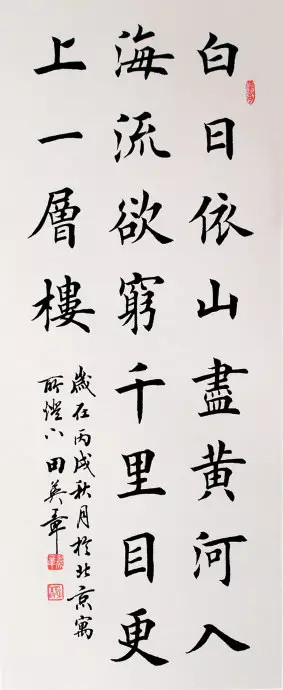 白日依山盡黄河入
海流欲窮千里目更
上一層樓
歲在丙戌秋月於北京寓
所燈下田英章